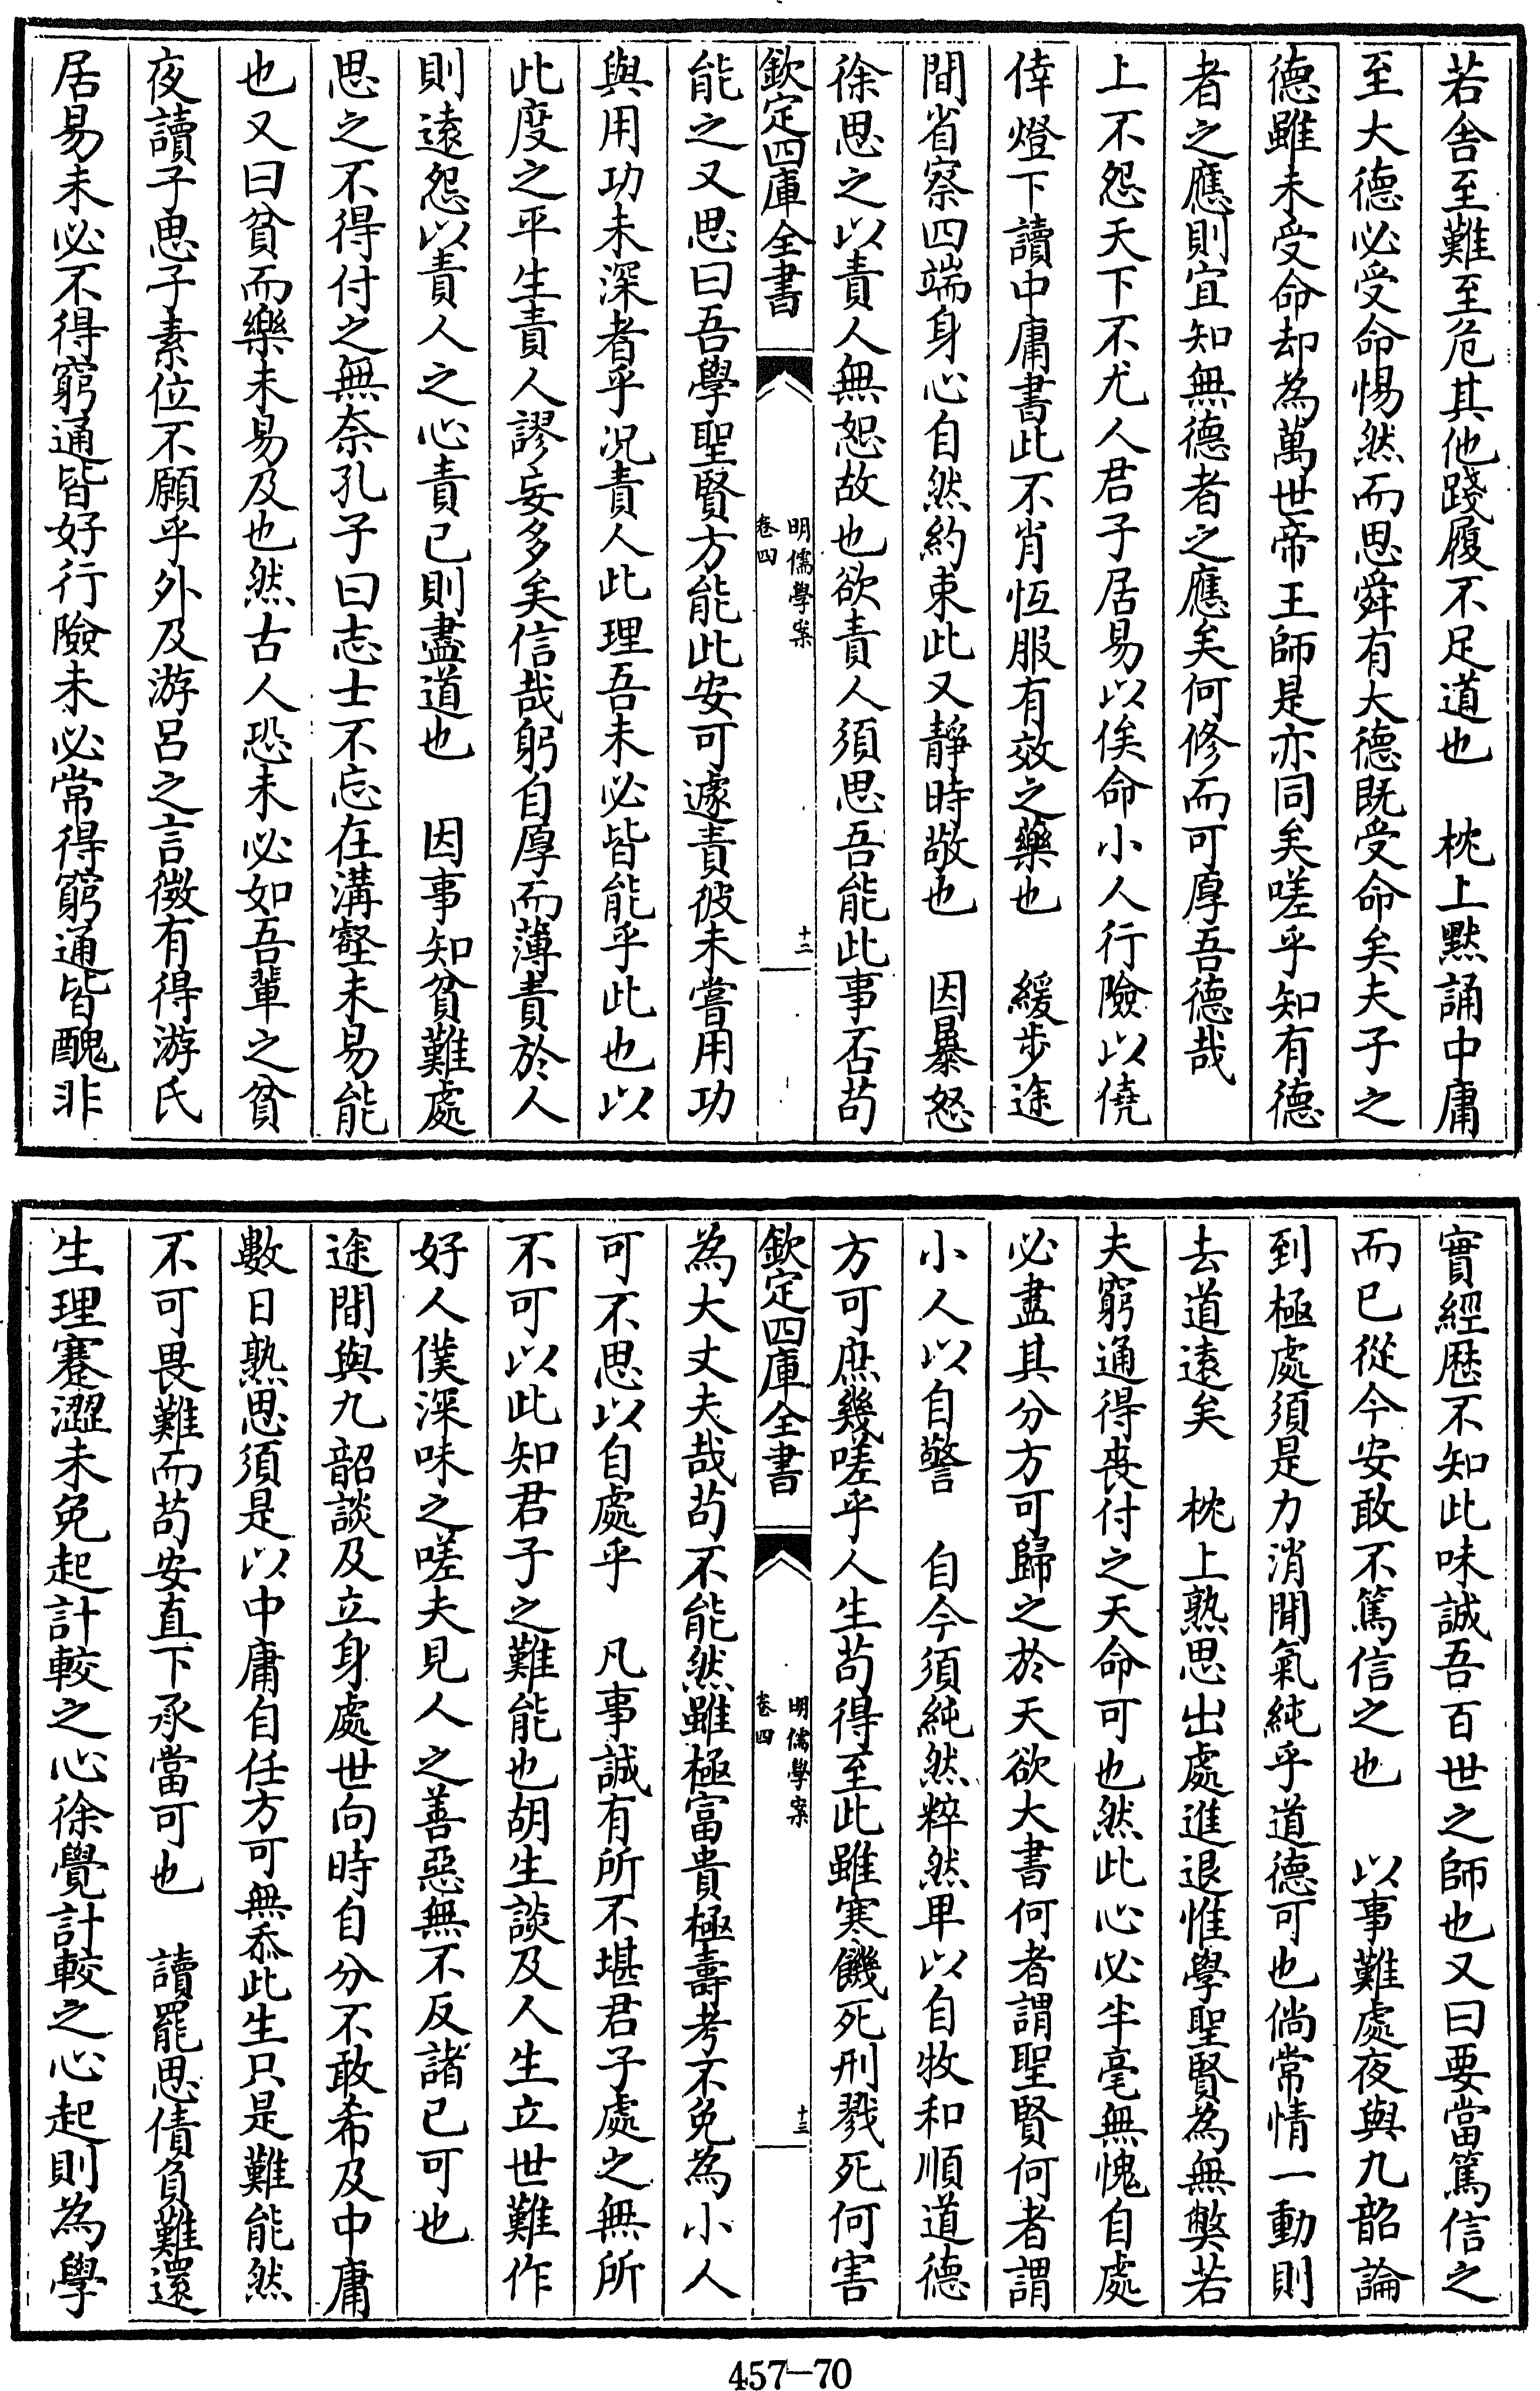 若舍至難至危其他踐履不足道也　枕上黙誦中庸
至大德必受命惕然而思舜有大德既受命矣夫子之
德雖未受命却為萬世帝王師是亦同矣嗟乎知有德
者之應則宜知無德者之應矣何修而可厚吾德哉
上不怨天下不尤人君子居易以俟命小人行險以僥
倖燈下讀中庸書此不肖恆服有效之藥也　緩步途
間省察四端身心自然約束此又靜時敬也　因暴怒
徐思之以責人無恕故也欲責人須思吾能此事否苟
欽定四庫全書
明儒學案
卷四
十二
能之又思曰吾學聖賢方能此安可遽責彼未嘗用功
與用功未深者乎况責人此理吾未必皆能乎此也以
此度之平生責人謬妄多矣信哉躬自厚而薄責於人
則遠怨以責人之心責己則盡道也　因事知貧難處
思之不得付之無奈孔子曰志士不忘在溝壑未易能
也又曰貧而樂未易及也然古人恐未必如吾輩之貧
夜讀子思子素位不願乎外及游呂之言微有得游氏
居易未必不得窮通皆好行險未必常得窮通皆醜非
實經歴不知此味誠吾百世之師也又曰要當篤信之
而已從今安敢不篤信之也　以事難處夜與九韶論
到極處須是力消閒氣純乎道德可也倘常情一動則
去道遠矣　枕上熟思出處進退惟學聖賢為無弊若
夫窮通得喪付之天命可也然此心必半毫無愧自處
必盡其分方可歸之於天欲大書何者謂聖賢何者謂
小人以自警　自今須純然粹然卑以自牧和順道德
方可庶幾嗟乎人生苟得至此雖寒饑死刑戮死何害
欽定四庫全書
明儒學案
卷四
十三
為大丈夫哉苟不能然雖極富貴極壽考不免為小人
可不思以自處乎　凡事誠有所不堪君子處之無所
不可以此知君子之難能也胡生談及人生立世難作
好人僕深味之嗟夫見人之善惡無不反諸己可也
途間與九韶談及立身處世向時自分不敢希及中庸
數日熟思須是以中庸自任方可無忝此生只是難能然
不可畏難而苟安直下承當可也　讀罷思債負難還
生理蹇澀未免起計較之心徐覺計較之心起則為學
457-70